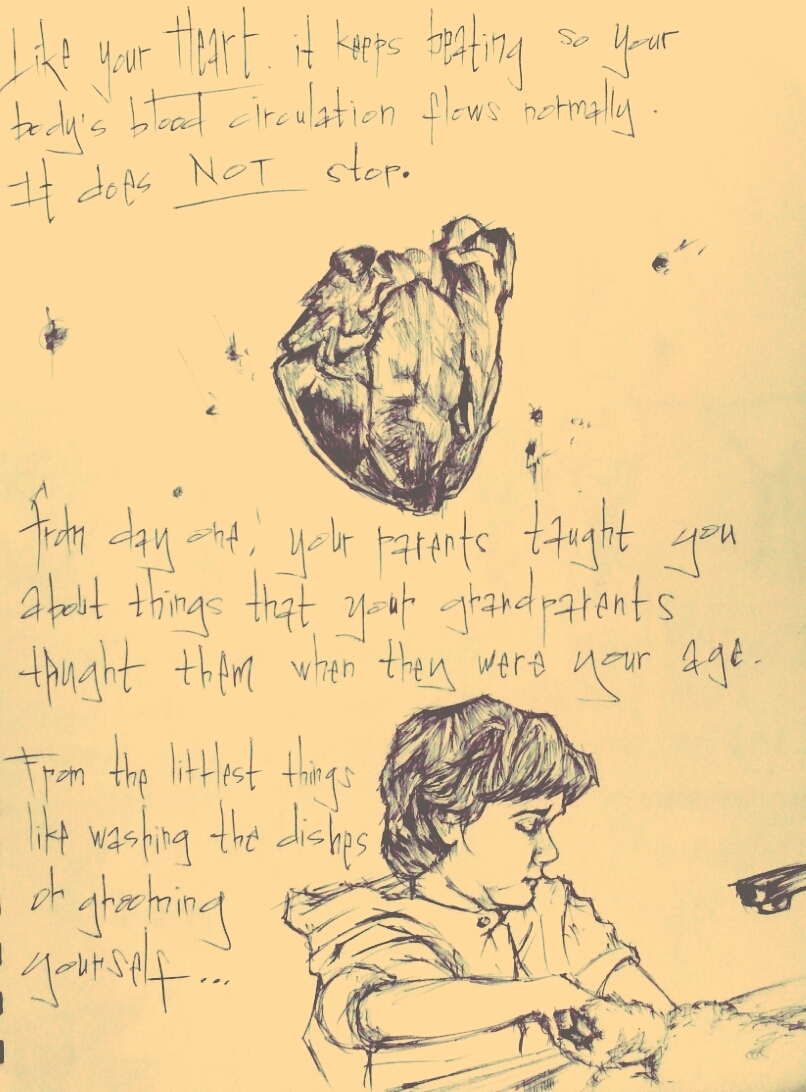 Like your Heart. it keeps beating so your
body's blood circulation flows normally.
It does NOT stop.
From day one, your parents taught you
about things that your grandparents
taught them when they were your age.
From the littlest things
like washing the dishes
or grooming
yourself...